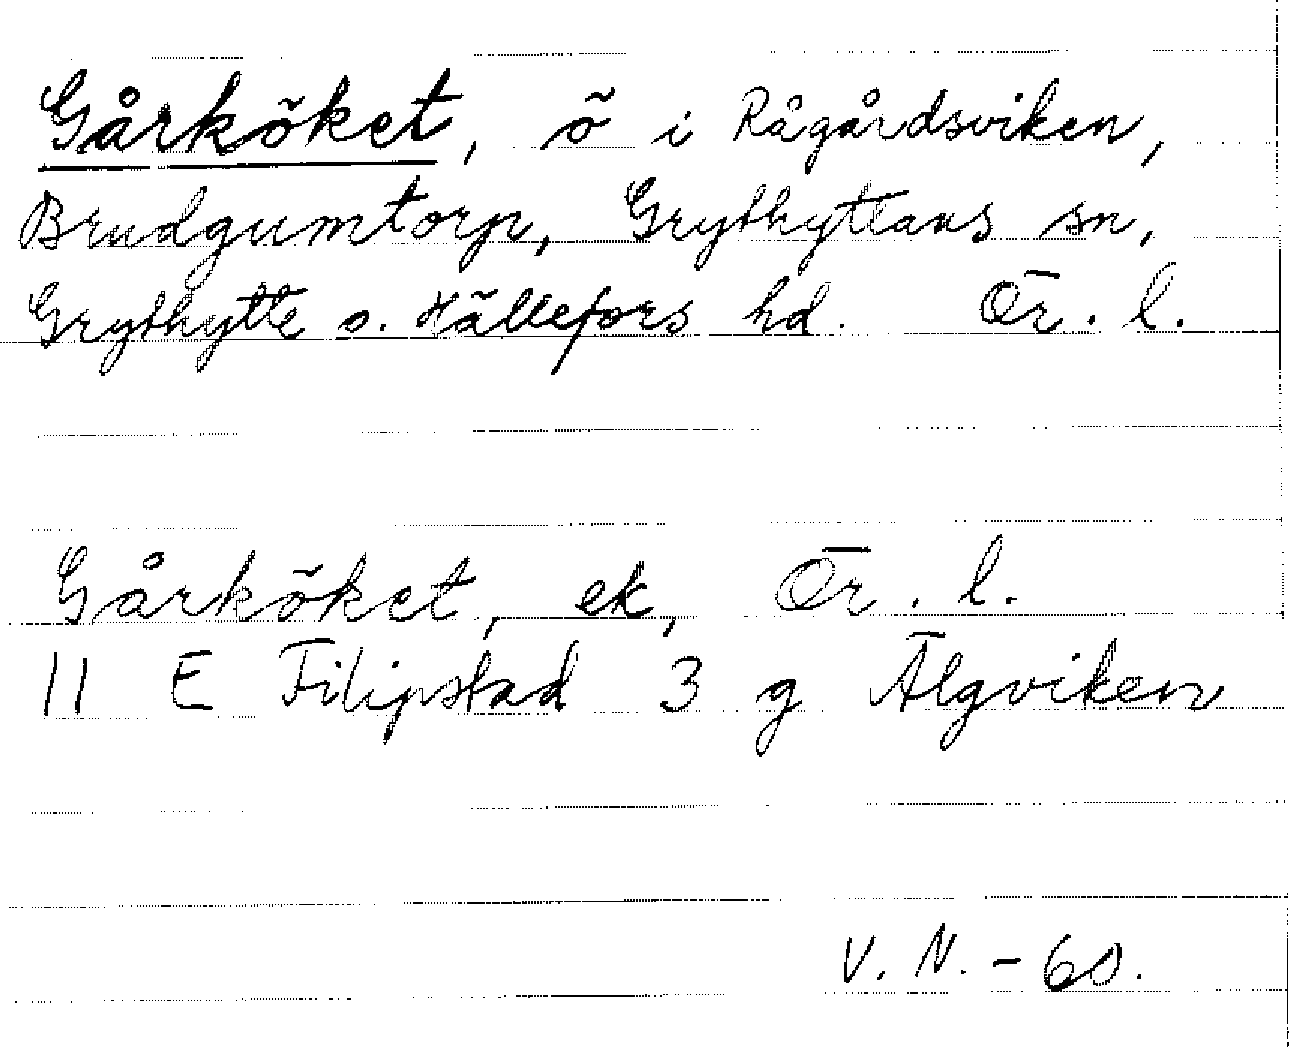 Gårköket, ö i Rågårdsviken,
Brudgumtorp, Grythyttans sn,
Grythytte o. Hällefors hd. Ör. l.
Gårköket, ek, Ör. l.
11 E Filipstad 3 g Älgviken
V. N. - 60.